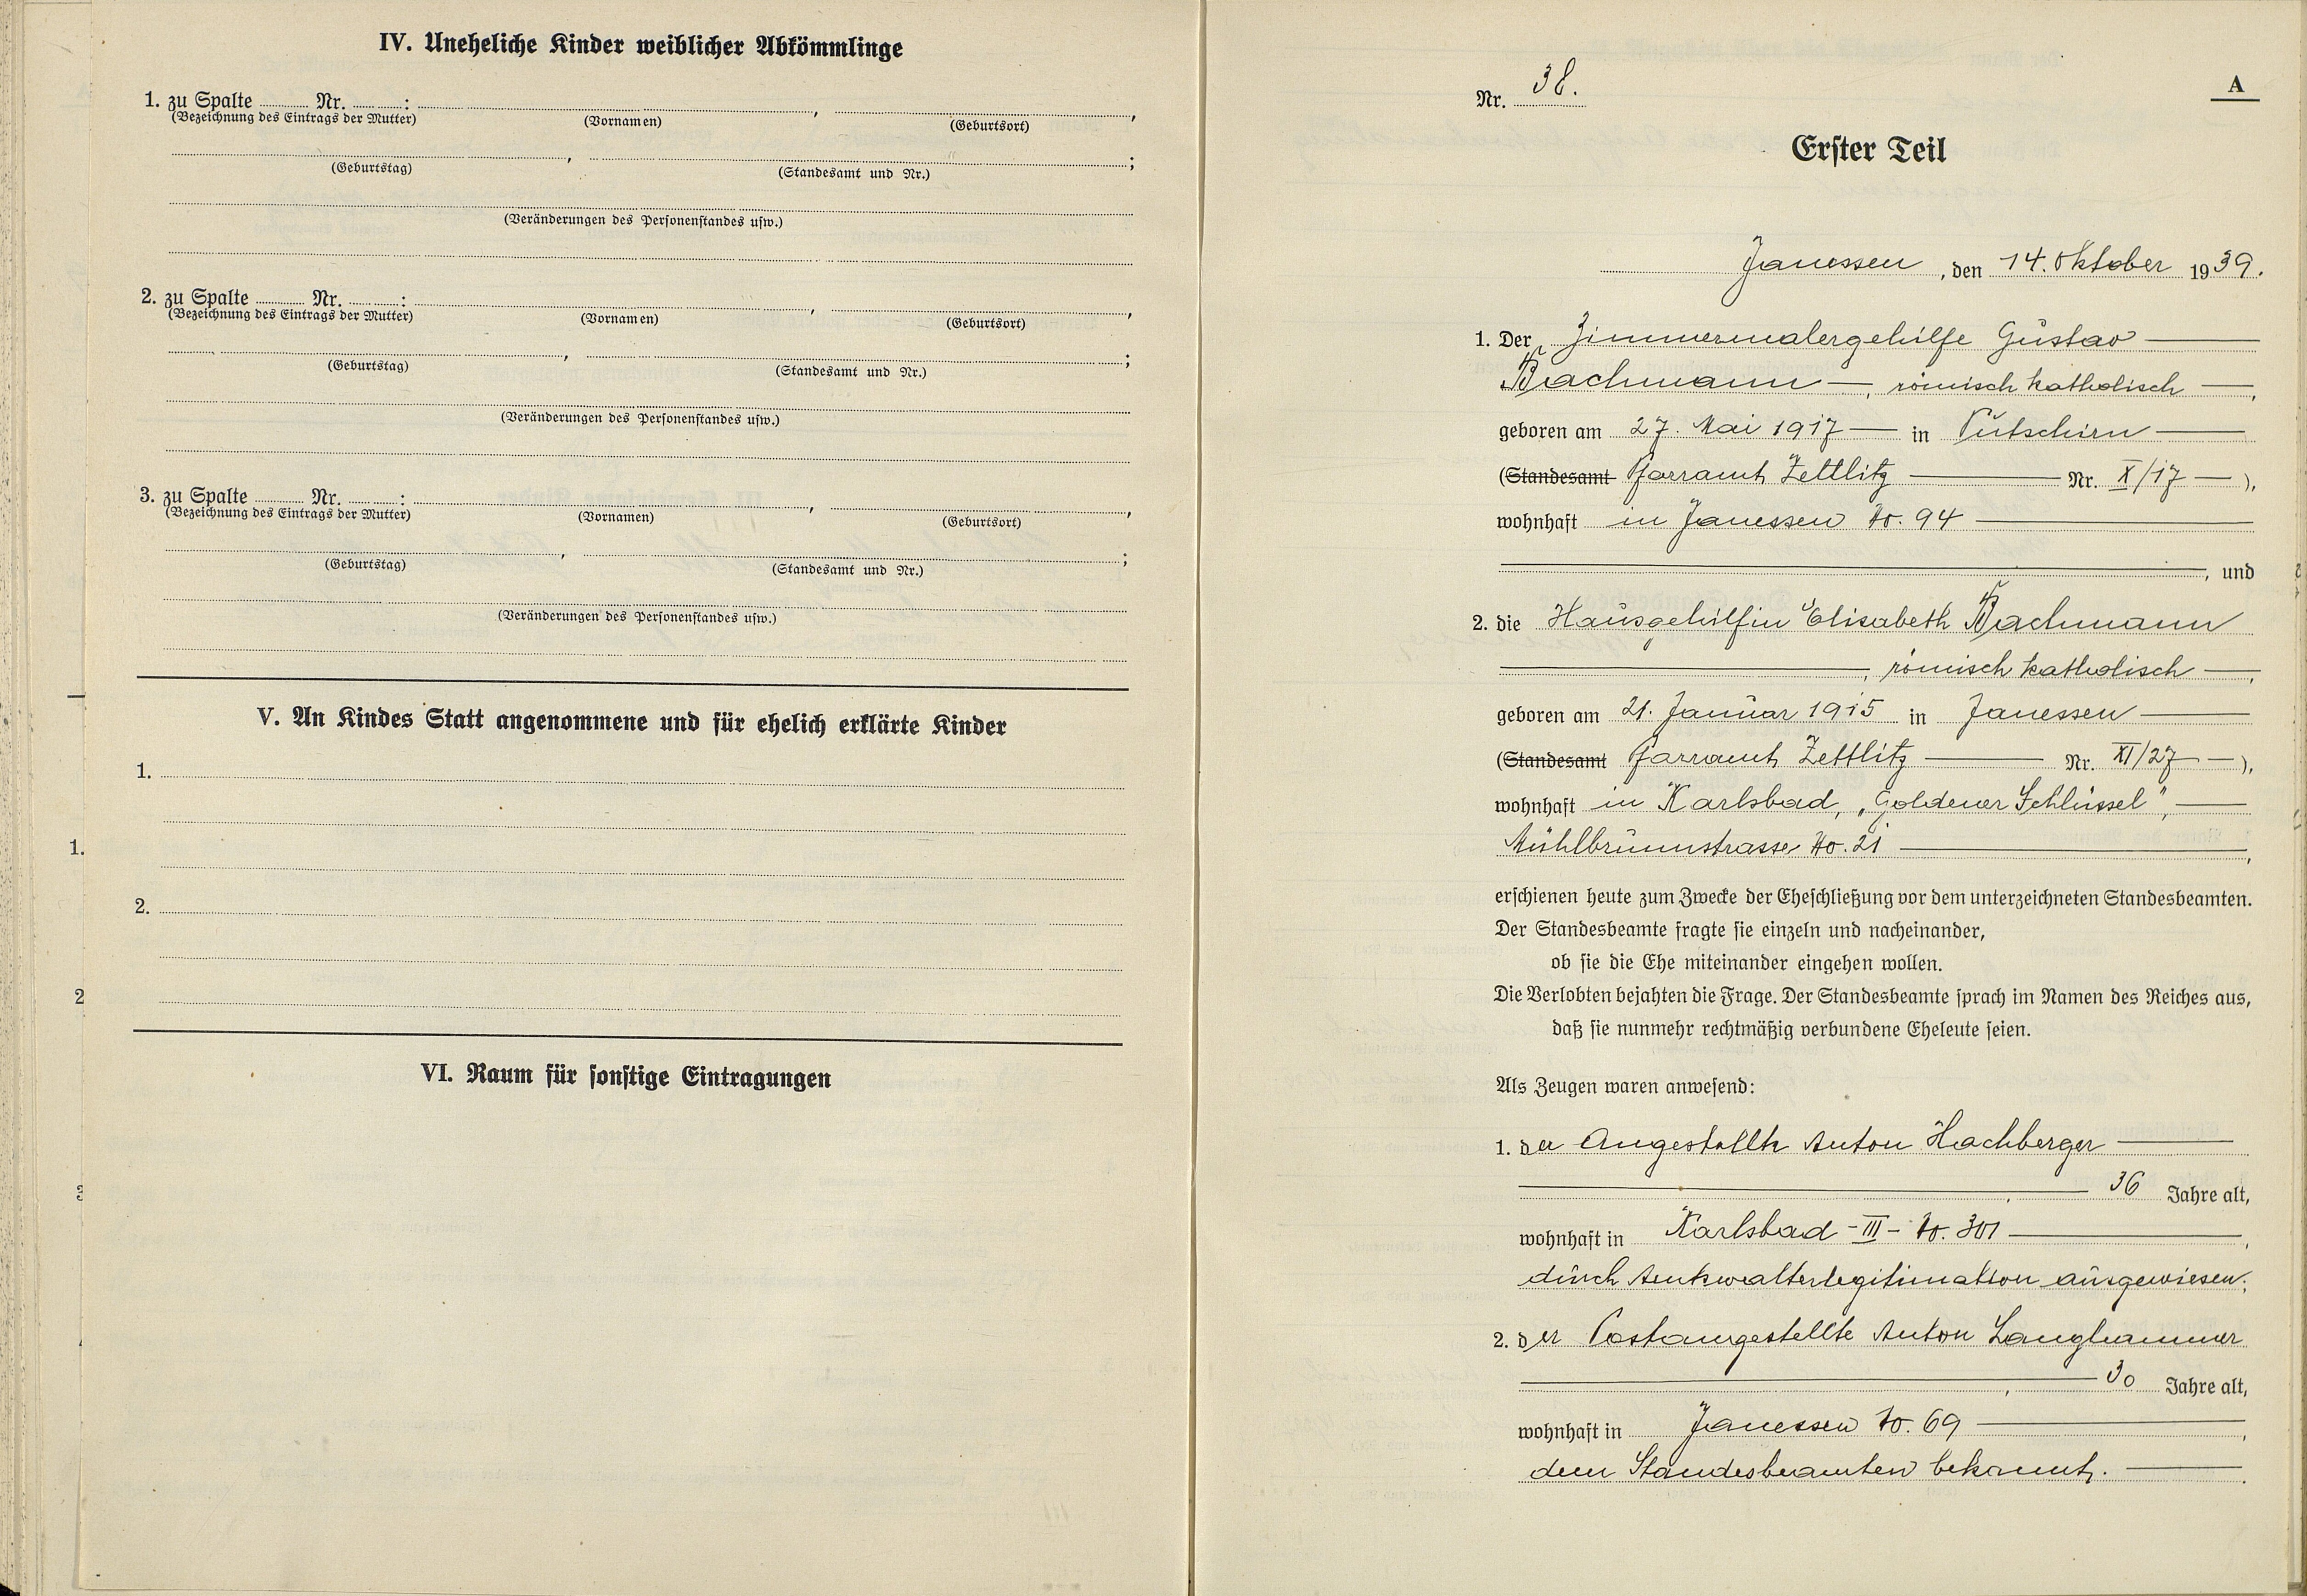 IV. Uneheliche Kinder weiblicher Abkömmlinge
1. zu Spalte ............ Nr. ............: ............, ............,
(Bezeichnung des Eintrags der Mutter) (Vornamen) (Geburtsort)
............, ............;
(Geburtstag) (Standesamt und Nr.)
(Veränderungen des Personenstandes usw.)
2. zu Spalte ............ Nr. ............: ............, ............,
(Bezeichnung des Eintrags der Mutter) (Vornamen) (Geburtsort)
............, ............;
(Geburtstag) (Standesamt und Nr.)
(Veränderungen des Personenstandes usw.)
3. zu Spalte ............ Nr. ............: ............, ............,
(Bezeichnung des Eintrags der Mutter) (Vornamen) (Geburtsort)
............, ............;
(Geburtstag) (Standesamt und Nr.)
(Veränderungen des Personenstandes usw.)
V. An Kindes Statt angenommene und für ehelich erklärte Kinder
1.
2.
VI. Raum für sonstige Eintragungen
1.
2
3
Nr. 38.
A
Erster Teil
Janessen, den 14. Oktober 1939.
1. Der Zimmermalergehilfe Gustav
Bachmann, römisch katholisch,
geboren am 27. Mai 1917 in Putschirn
(Standesamt Pfarramt Zettlitz Nr. X/17),
wohnhaft in Janessen No. 94
, und
2. die Hausgehilfin Elisabeth Bachmann
, römisch katholisch,
geboren am 21. Januar 1915 in Janessen
(Standesamt Pfarramt Zettlitz Nr. XI/27),
wohnhaft in Karlsbad, „Goldener Schlüssel",
Mühlbrunnstrasse No. 21,
erschienen heute zum Zwecke der Eheschließung vor dem unterzeichneten Standesbeamten.
Der Standesbeamte fragte sie einzeln und nacheinander,
ob sie die Ehe miteinander eingehen wollen.
Die Verlobten bejahten die Frage. Der Standesbeamte sprach im Namen des Reiches aus,
daß sie nunmehr rechtmäßig verbundene Eheleute seien.
Als Zeugen waren anwesend:
1. der Angestellte Anton Hachberger
, 36 Jahre alt,
wohnhaft in Karlsbad - III - No. 301,
durch Amtswalterlegitimation ausgewiesen;
2. der Postangestellte Anton Langhammer
, 30 Jahre alt,
wohnhaft in Janessen No. 69,
dem Standesbeamten bekannt.